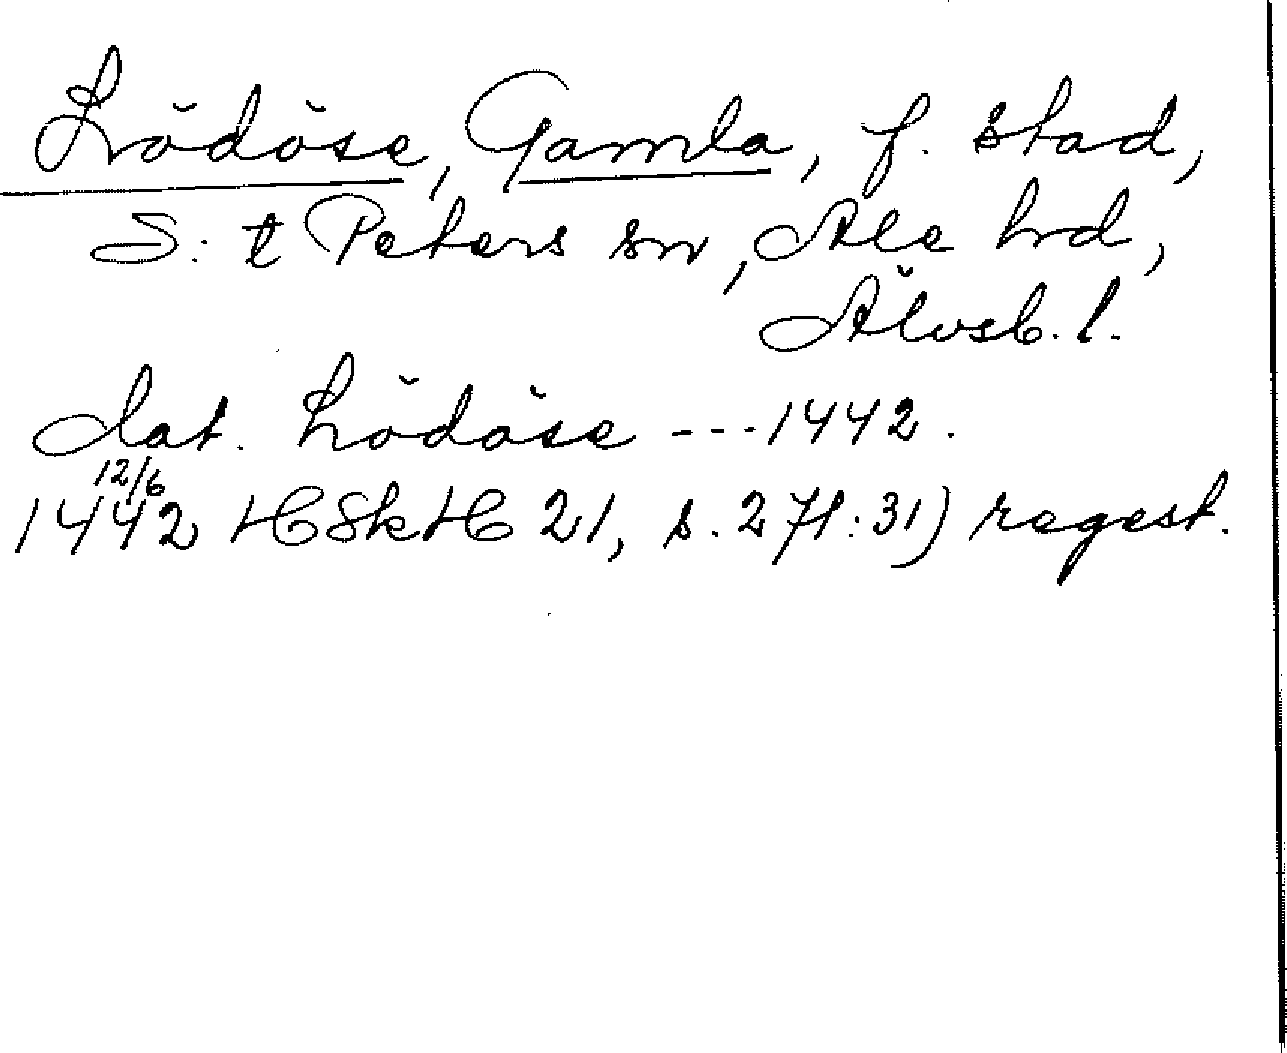 Lödöse, Gamla, f. stad,
S:t Peters sn, Ale hd,
Älvsb. l.
dat. Lödöse --- 1442.
12/6
1442 HSkH 21, s. 27f:31) regest.